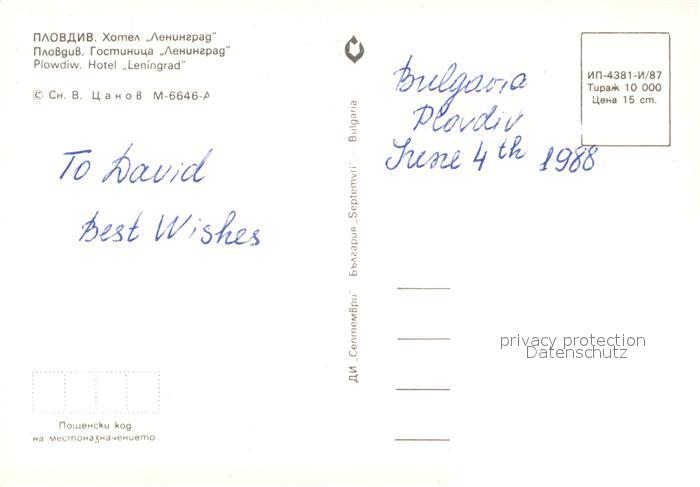 ПЛОВДИВ. Хотел „Ленинград"
Пловдив. Гостиница „Ленинград"
Plowdiw. Hotel „Leningrad"
© Сн. В. Цанов М-6646-А
To David
Best Wishes
Пощенски код
на местоназначението
ДИ „Септември" България „Septemvri" – Bulgaria
Bulgaria
Plovdiv
June 4th 1988
ИП-4381-И/87
Тираж 10 000
Цена 15 ст.
privacy protection
Datenschutz